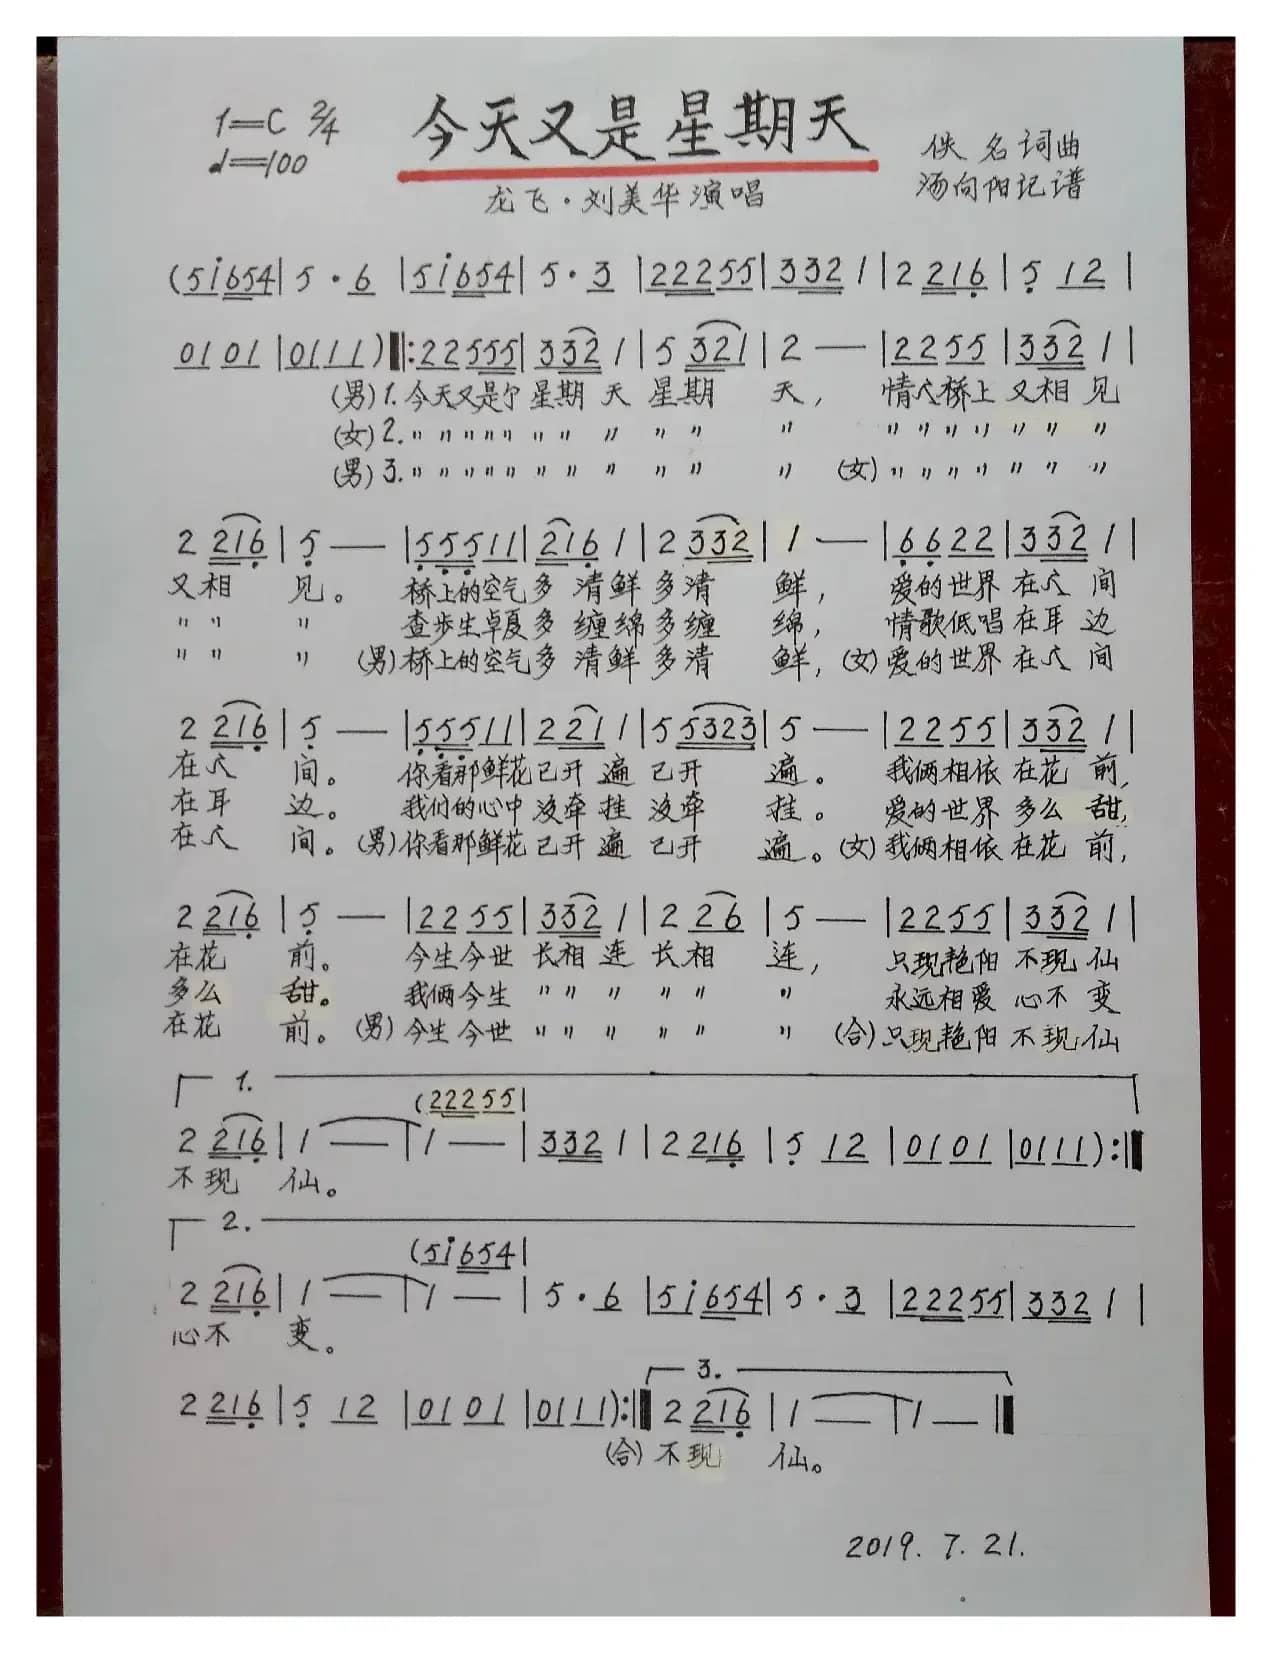 1=C 2/4
♩=100
今天又是星期天
佚名词曲
汤向阳记谱
龙飞·刘美华演唱
(5i654|5·6|5i654|5·3|22255|3321|2216|5 12|
0101|0111)‖:22555|3321|5321|2—|2255|3321|
(男)1.今天又是个星期天星期天,情人桥上又相见
(女)2.〃〃〃〃〃〃〃〃〃〃〃〃〃〃〃〃〃〃
(男)3.〃〃〃〃〃〃〃〃〃〃(女)〃〃〃〃〃〃〃
2216|5—|55511|2161|2332|1—|6622|3321|
又相见。桥上的空气多清鲜多清鲜,爱的世界在人间
〃〃〃查步生卓夏多缠绵多缠绵,情歌低唱在耳边
〃〃〃(男)桥上的空气多清鲜多清鲜,(女)爱的世界在人间
2216|5—|55511|2211|55323|5—|2255|3321|
在人间。你看那鲜花已开遍已开遍。我俩相依在花前,
在耳边。我们的心中没牵挂没牵挂。爱的世界多么甜,
在人间。(男)你看那鲜花已开遍已开遍。(女)我俩相依在花前,
2216|5—|2255|3321|2 26|5—|2255|3321|
在花前。今生今世长相连长相连,只现艳阳不现仙
多么甜。我俩今生〃〃〃〃〃〃永远相爱心不变
在花前。(男)今生今世〃〃〃〃〃〃(合)只现艳阳不现仙
1.
(22255|
2216|1—|1—|3321|2216|5 12|0101|0111):‖
不现仙。
2.
(5i654|
2216|1—|1—|5·6|5i654|5·3|22255|3321|
心不变。
3.
2216|5 12|0101|0111):‖2216|1—|1—‖
(合)不现仙。
2019.7.21.